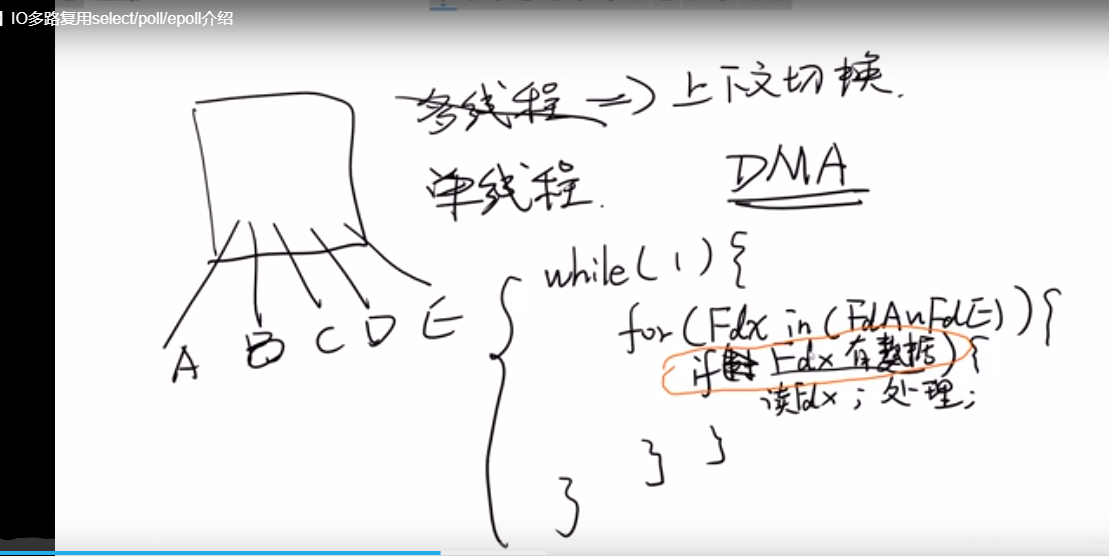 IO多路复用select/poll/epoll介绍
多线程 => 上下文切换.
单线程.
DMA
while(1){
for(Fdx in (FdA~FdE)){
if( Fdx 有数据){
读Fdx; 处理;
}
}
}
A B C D E